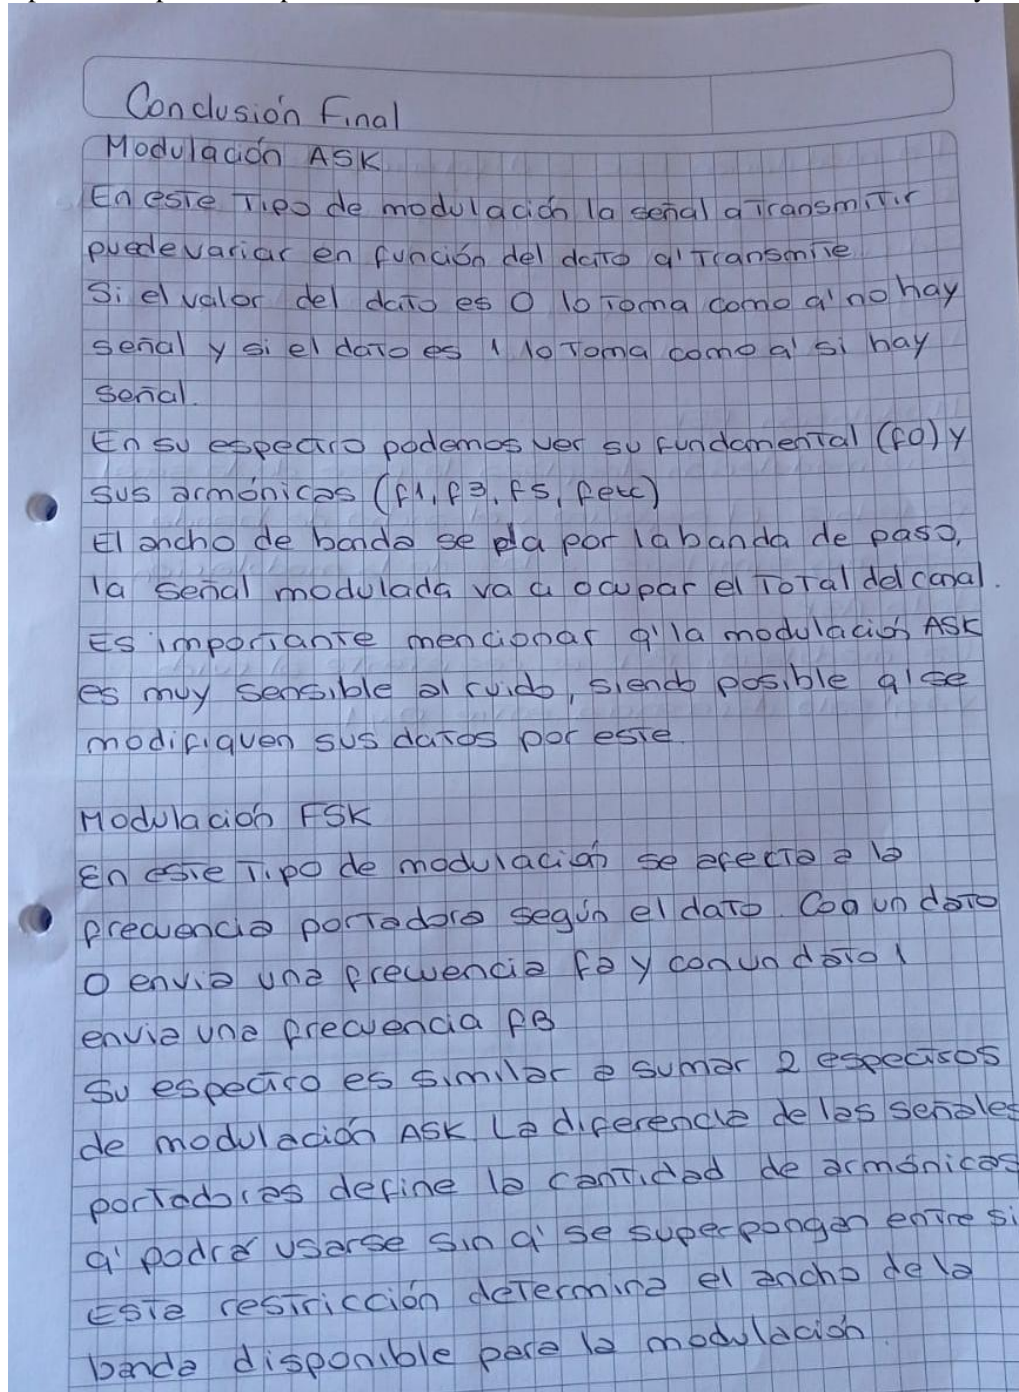 Conclusión Final
Modulación ASK
En este Tipo de modulación la señal a Transmitir
puede variar en función del dato q' Transmite
Si el valor del dato es 0 lo toma como q' no hay
señal y si el dato es 1 lo Toma como q' si hay
señal.
En su espectro podemos ver su fundamental (f0) y
sus armónicas (f1, f3, f5, fetc)
El ancho de banda se da por la banda de paso,
la señal modulada va a ocupar el Total del canal.
Es importante mencionar q' la modulación ASK
es muy sensible al ruido, siendo posible q' se
modifiquen sus datos por este.
Modulación FSK
En este Tipo de modulación se efecta a la
frecuencia portadora según el dato. Con un dato
0 envia una frecuencia fa y con un dato 1
envia una frecuencia fB
Su espectro es similar a sumar 2 espectros
de modulación ASK La diferencia de las señales
portadoras define la cantidad de armónicas
q' podrá usarse sin q' se superpongan entre si
Esta restricción determina el ancho de la
banda disponible para la modulación.